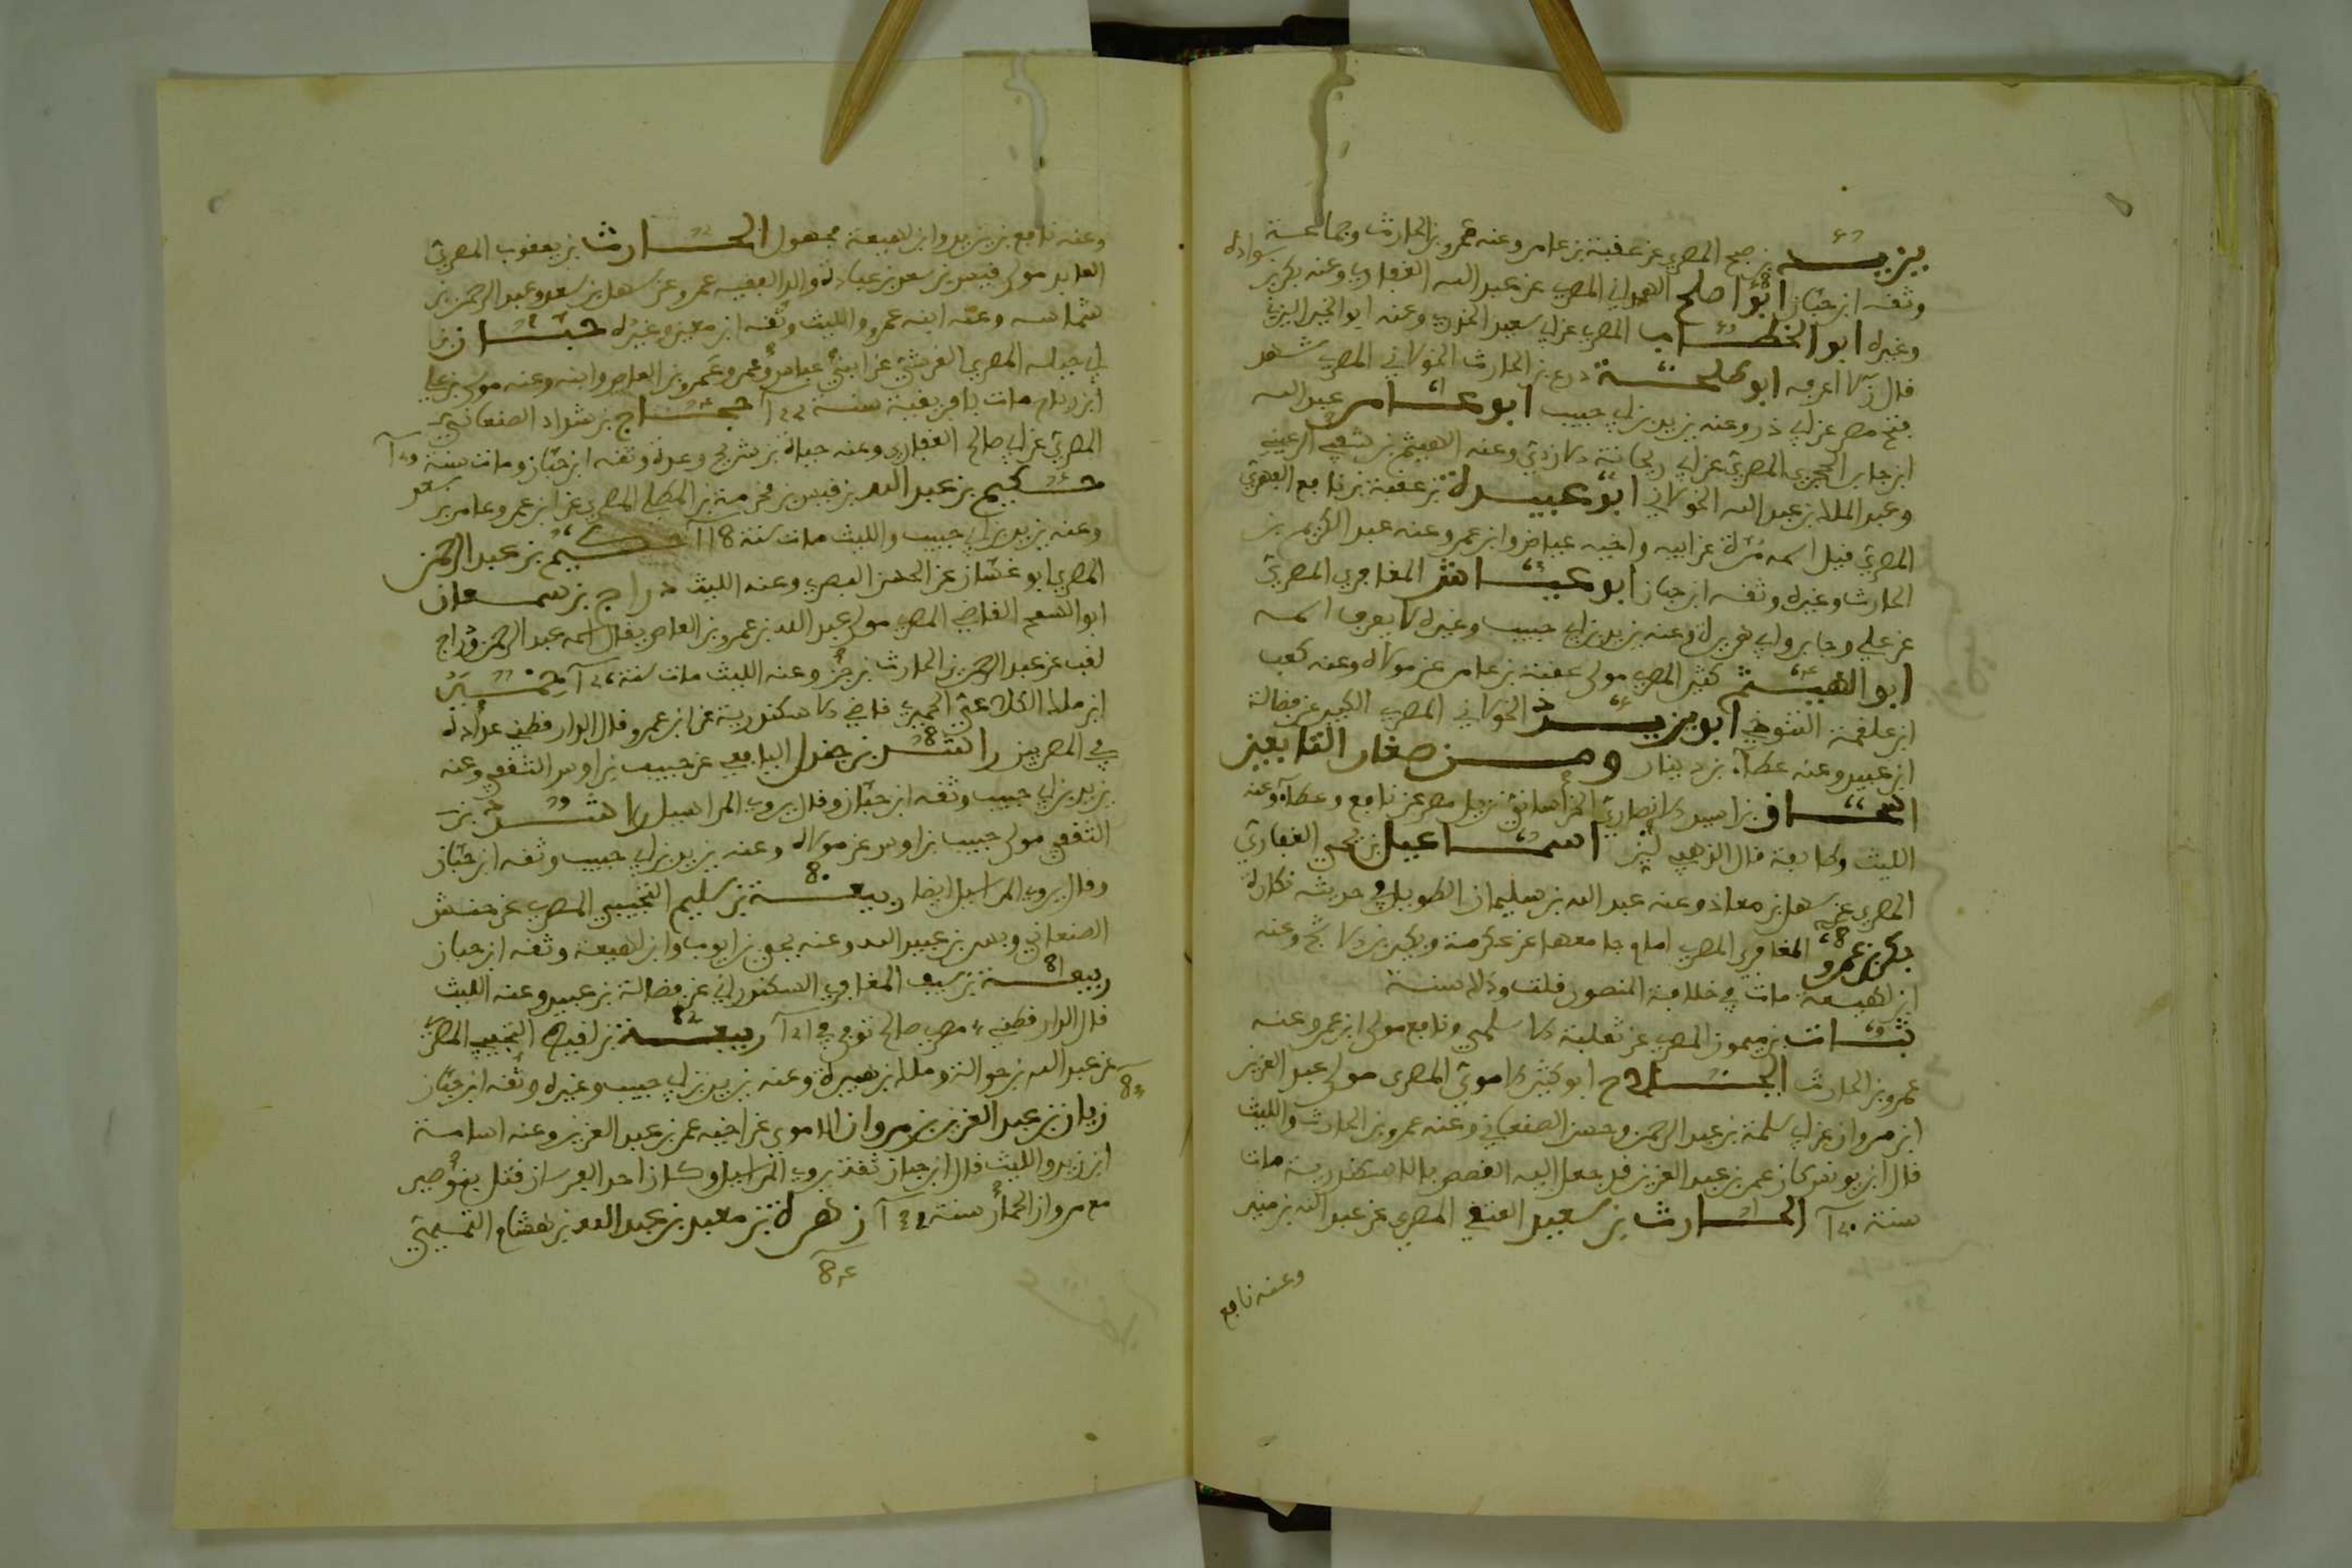 يزيد بن صبح المصري عن عقبة بن عامر وعنه عمرو بن الحارث وجماعة
وثقه ابن حبان ابو صالح الغفاري المصري عن عبد الله الغفاري وعنه بكر بن سوادة
وغيره ابو الخطاب المصري عن ابي سعيد الخدري وعنه ابو الخير اليزني
قال ن لا اعرفه ابو طلحة درع بن الحارث الخولاني المصري شهد
فتح مصر عن ابي ذر وعنه يزيد بن ابي حبيب ابو عامر عبد الله
ابن جابر الحجري المصري عن ابي ريحانة الازدي وعنه الهيثم بن شفي الرعيني
وعبد الملك بن عبد الله الخولاني ابو عبيدة بن عقبة بن نافع الفهري
المصري قيل اسمه مرة عن ابيه واخيه عياض وابن عمر وعنه عبد الكريم بن
الحارث وغيره وثقه ابن حبان ابو عياش المعافري المصري
عن علي وجابر وابي هريرة وعنه يزيد بن ابي حبيب وغيره لا يعرف اسمه
ابو الهيثم كثير المصري مولى عقبة بن عامر عن مولاه وعنه كعب
ابن علقمة التنوخي ابو يزيد الخولاني المصري الكبير عن فضالة
ابن عبيد وعنه عطاء بن دينار ومن صغار التابعين
اسحاق بن اسيد الانصاري الخراساني نزيل مصر عن نافع وعطاء وعنه
الليث وطايفة قال الذهبي لين اسماعيل بن يحيى الغفاري
المصري عن سهل بن معاذ وعنه عبد الله بن سليمان الطويل في حديثه نكارة
بكر بن عمرو المعافري المصري امام جامعها عن عكرمة وبكير بن الاشج وعنه
ابن لهيعة مات في خلافة المنصور قلت وذلك سنة
ثبات بن ميمون المصري عن ثعلبة الاسلمي ونافع مولى ابن عمر وعنه
عمرو بن الحارث الجلاح ابو كثير الاموي المصري مولى عبد العزيز
ابن مروان عن ابي سلمة بن عبد الرحمن وحنش الصنعاني وعنه عمرو بن الحارث والليث
قال ابن يونس كان عمر بن عبد العزيز قد جعل اليه القصص بالاسكندرية مات
سنة ١٢٠ الحارث بن سعيد العتقي المصري عن عبد الله بن منين
وعنه نافع
وعنه نافع بن يزيد وابن لهيعة مجهول الحارث بن يعقوب المصري
العابد مولى قيس بن سعد بن عبادة والد الفقيه عمرو عن سهل بن سعد وعبد الرحمن بن
شماسه وعنه ابنه عمرو والليث وثقه ابن معين وغيره حبان بن
ابي جبله المصري القرشي عن ابني عباس وعمر وعمرو بن العاص وابنه وعنه موسى بن علي
ابن رباح مات بافريقية سنة ١٢٢ حجاج بن شداد الصنعاني
المصري عن ابي صالح الغفاري وعنه حياة بن شريح وعدة وثقه ابن حبان ومات سنة
حكيم بن عبد الله بن قيس بن مخرمة بن المطلب المصري عن ابن عمر وعامر بن سعد
وعنه يزيد بن ابي حبيب والليث مات سنة ١١٨ حكيم بن عبد الرحمن
المصري ابو غسان عن الحسن البصري وعنه الليث دراج بن سمعان
ابو السمح القاضي المصري مولى عبد الله بن عمرو بن العاص يقال اسمه عبد الرحمن ودراج
لقب عن عبد الله بن الحارث بن جزء وعنه الليث مات سنة
ابن مالك الكلاعي الحميري قاضي الاسكندرية عن ابن عمر وقال الدارقطني عداده
في المصريين راشد بن جندل اليافعي عن حبيب بن اوس الثقفي وعنه
يزيد بن ابي حبيب وثقه ابن حبان وقال يروي المراسيل راشد بن
الثقفي مولى حبيب بن اوس عن مولاه وعنه يزيد بن ابي حبيب وثقه ابن حبان
وقال يروي المراسيل ايضا ربيعة بن سليم التجيبي المصري عن حنش
الصنعاني وبسر بن عبيد الله وعنه يحيى بن ايوب وابن لهيعة وثقه ابن حبان
ربيعة بن سيف المعافري السكندراني عن فضالة بن عبيد وعنه الليث
قال الدارقطني مصري صالح توفي في ربيعة بن لقيط التجيبي المصري
عن عبد الله بن حوالة ومالك بن هبيرة وعنه يزيد بن ابي حبيب وغيره وثقه ابن حبان
زبان بن عبد العزيز بن مروان الاموي عن اخيه عمر بن عبد العزيز وعنه اسامة
ابن زيد والليث قال ابن حبان ثقة يروي المراسيل وكان احد الفرسان قتل ببوصير
مع مروان الحمار سنة ١٣٢ زهرة بن معبد بن عبد الله بن هشام التيمي